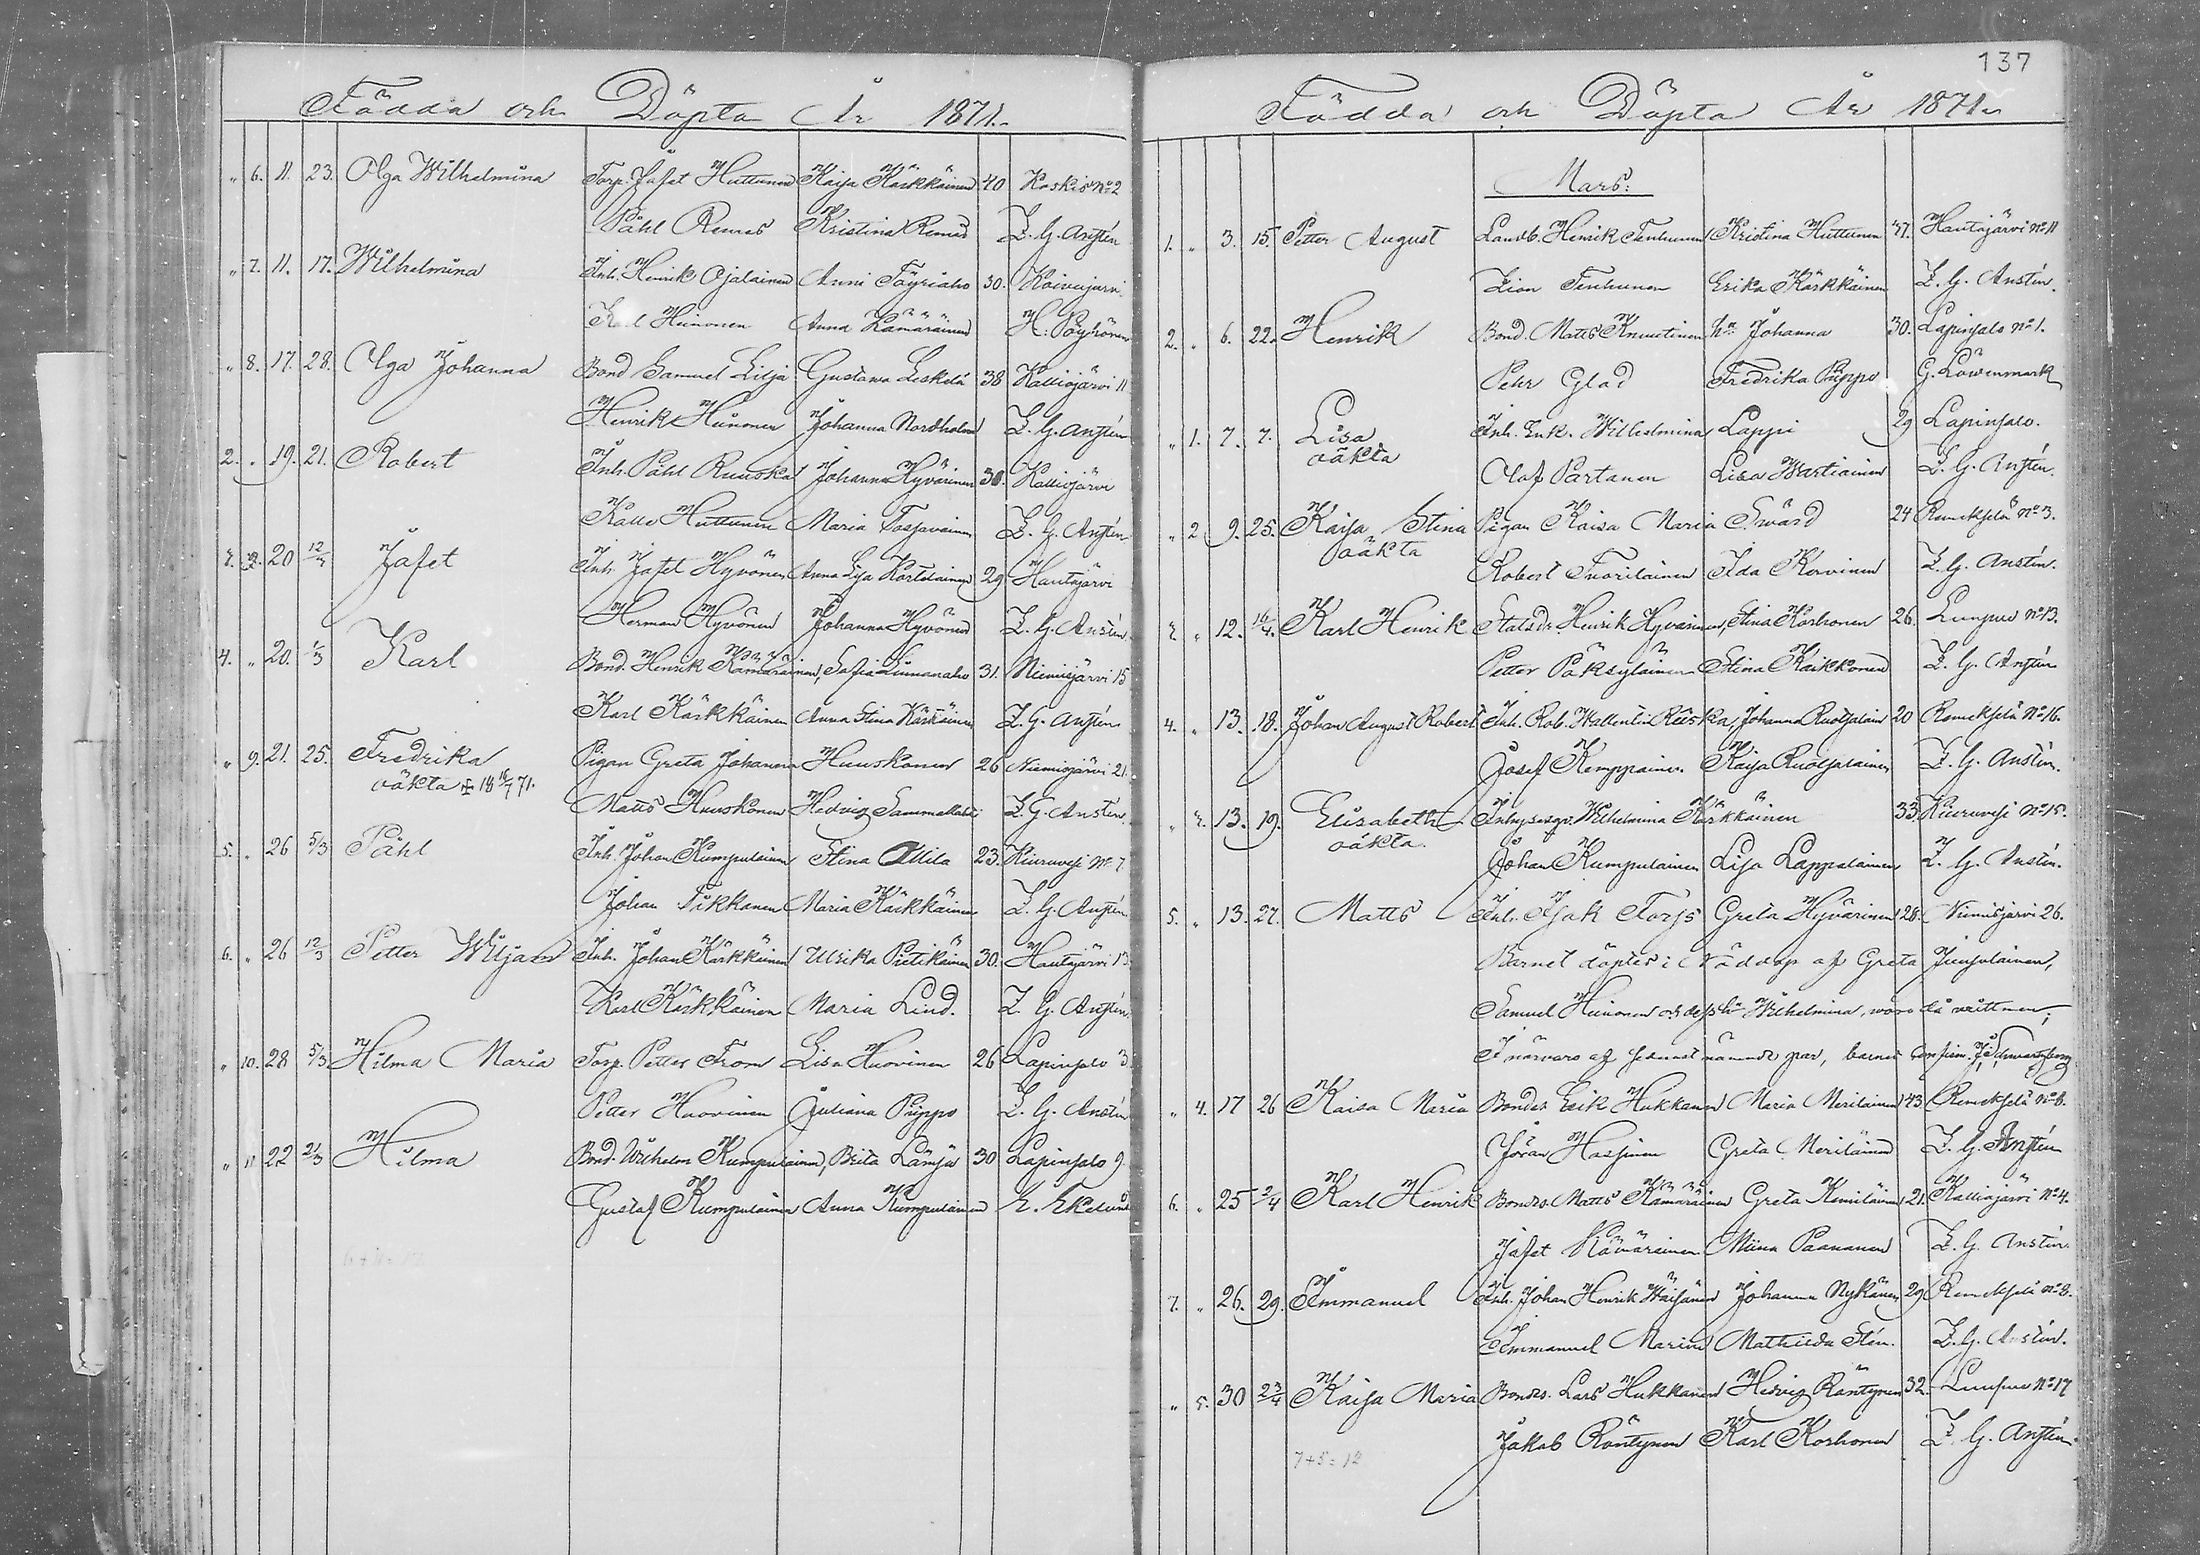 Födda och Döpta År 1871.
„ 6. 11. 23. Olga Wilhelmina Torp. Jafet Huttunen Kaija Kärkkäinen 40 Koskis No 2
Påhl Remes Kristina Remes Z. G. Anstén
„ 7. 11. 17. Wilhelmina Inh. Henrik Ojalainen Anni Töyriaho 30. Koivujärvi
Karl Heinonen Anna Kämäräinen H. Pöyhönen
„ 8. 17. 28. Olga Johanna Bond Samuel Lilja Gustava Leskelä 38 Kalliojärvi 11
Henrik Huinonen Johanna Nordholm Z. G. Anstén
2. „ 19. 21. Robert Inh. Påhl Ruuska Johanna Hyvärinen 30. Kalliojärvi
Kalle Huttunen Maria Tossavainen Z. G. Anstén
3. 20 12/3 Jafet Inh. Jafet Hyvönen Anna Lisa Kartelainen 29 Hautajärvi
Herman Hyvönen Johanna Hyvönen Z. G. Anstén
4. „ 20. 1/3 Karl Bond. Henrik Kämäräinen, Sofia Linnanaho 31. Niemisjärvi 15
Karl Kärkkäinen Anna Stina Kärkkäinen Z. G. Anstén
„ 9. 21. 25. Fredrika Pigan Greta Johanna Huuskonen 26 Niemisjärvi 21.
oäkta ✠ 18 16/7 71. Matts Huuskonen Hedvig Sammallahti Z. G. Anstén.
5. „ 26 5/3 Påhl Inh. Johan Kumpulainen Stina Mila 23. Kiuruvesi No 7.
Johan Tikkanen Maria Kärkkäinen Z. G. Anstén
6. „ 26 12/3 Petter Wiljam Inh. Johan Kärkkäinen Ulrika Pietikäinen 30. Hautajärvi 13
Karl Kärkkäinen Maria Lind. Z. G. Anstén
„ 10. 28 5/3 Hilma Maria Torp. Petter From Lisa Huovinen 26 Lapinsalo 3
Petter Huovinen Juliana Piippo Z. G. Anstén
„ 11 22 2/3 Hilma Bond. Wilhelm Kumpulainen, Brita Lämsä 30 Lapinsalo 9.
Gustaf Kumpulainen Anna Kumpulainen E. Ekelund
137
Födda och Döpta År 1871.
Mars:
1. „ 3. 15. Petter August Landb. Henrik Tenhunen Kristina Huttunen 37. Hautajärvi No 11
Zion Tenhunen Erika Kärkkäinen Z. G. Anstén.
2. „ 6. 22. Henrik Bond. Matts Knuutinen hn Johanna 30. Lapinsalo No 1.
Pehr Glad Fredrika Piippo G. Löwenmark
„ 1. 7. 7. Lisa Inh. Enk. Wilhelmina Lappi 29 Lapinsalo.
oäkta Olof Partanen Lisa Wartiainen Z. G. Anstén.
„ 2 9. 25. Kaija Stina Pigan Kaisa Maria Swärd 24 Remekselä No 3.
oäkta Robert Tuorilainen Ida Kervinen Z. G. Anstén.
3. „ 12. 16/4. Karl Henrik Statsdr. Henrik Hyvärinen, Stina Korhonen 26. Luupuvesi No 13.
Petter Päksyläinen Stina Kaikkonen Z. G. Anstén
4. „ 13. 18. Johan August Robert Inh. Rob. Wallentin Ruuska, Johanna Ruotsalain 20 Remekselä No 16.
Josef Kemppainen. Kaija Ruotsalainen Z. G. Anstén.
„ 3. 13. 19. Elisabeth Inhysesp. Wilhelmina Kärkkäinen 33. Kiuruvesi No 15.
oäkta. Johan Kumpulainen Lisa Lappalainen Z. G. Anstén.
5. „ 13. 27. Matts Inh. Isak Torjs Greta Hyvärinen 28. Niemisjärvi 26.
Barnet döptes i Nöddop af Greta Juujulainen,
Samuel Huinonen och dess h: Wilhelmina, woro då vittnen;
I närvaro af samma nämnde par, barnet confirm. J. Schwartzberg
„ 4. 17 26 Kaisa Maria Bonden Erik Hukkanen Maria Meriläinen 43 Remekselä No 6.
Göran Hassinen Greta Meriläinen Z. G. Anstén
6. „ 25 2/4 Karl Henrik Bonds. Matts Kämäräinen Greta Kemiläinen 21. Kalliojärvi No 4.
Jafet Kämäräinen Miina Paananen Z. G. Anstén.
7. „ 26. 29. Immanuel Inh. Johan Henrik Wäisänen Johanna Nykänen 29 Remekselä No 8.
Immanuel Marin Mathilda Stén. Z. G. Anstén.
„ 5. 30 23/4 Kaija Maria Bonds. Lars Hukkanen Hedvig Räntynen 32. Luupuvesi No 17
7+5=12 Jakob Räntynen Karl Korhonen Z. G. Anstén